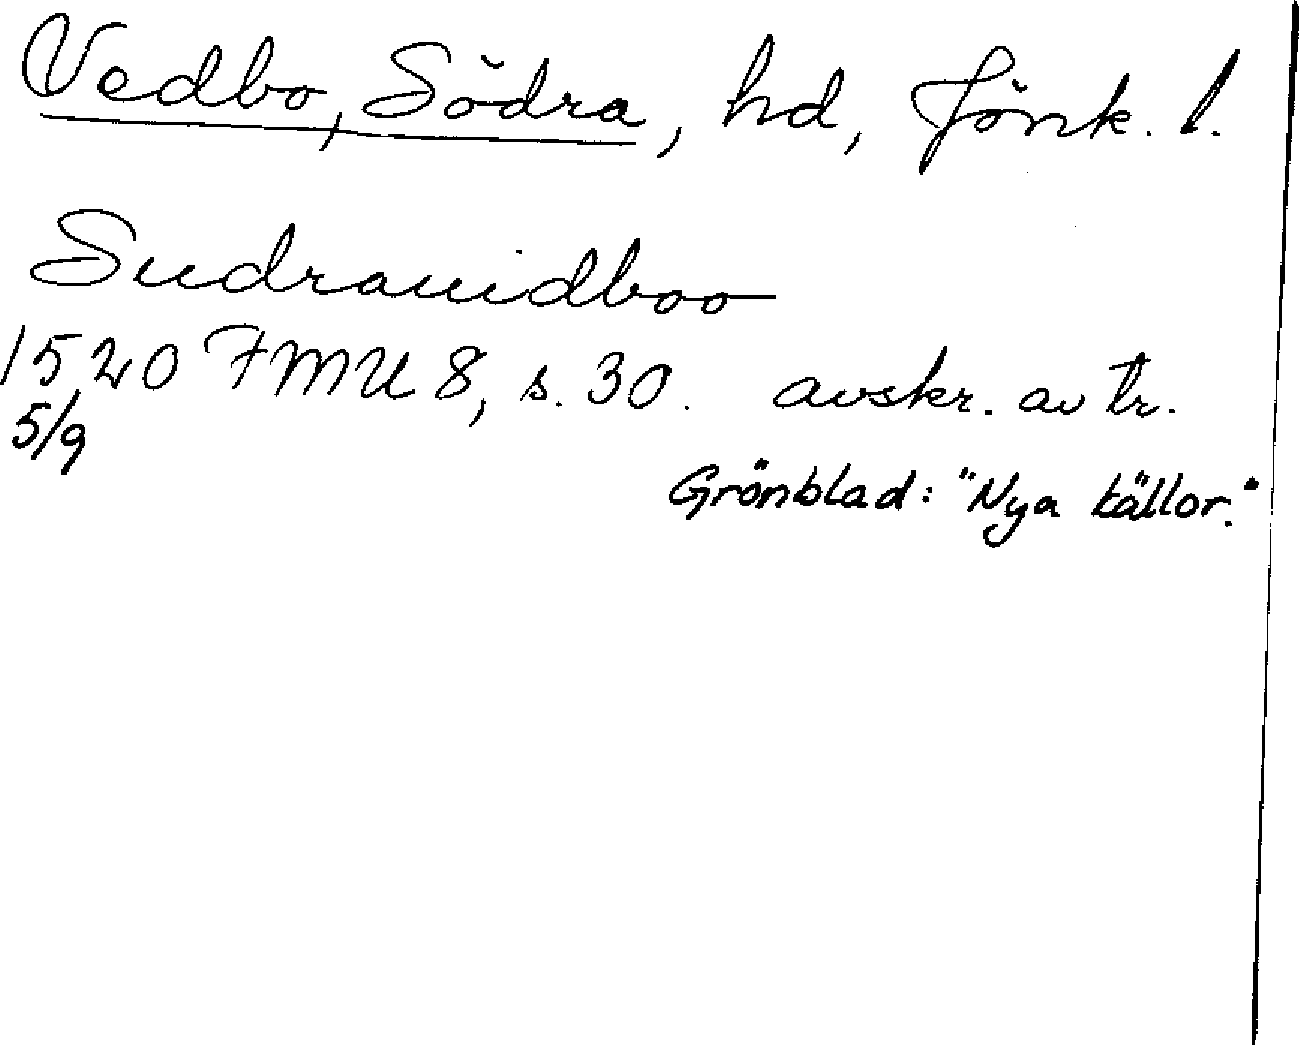 Vedbo, Södra, hd, Jönk. l.
Sudrauidboo
1520 FMU 8, s. 30. avskr. av tr.
5/9
Grönblad: "Nya källor."